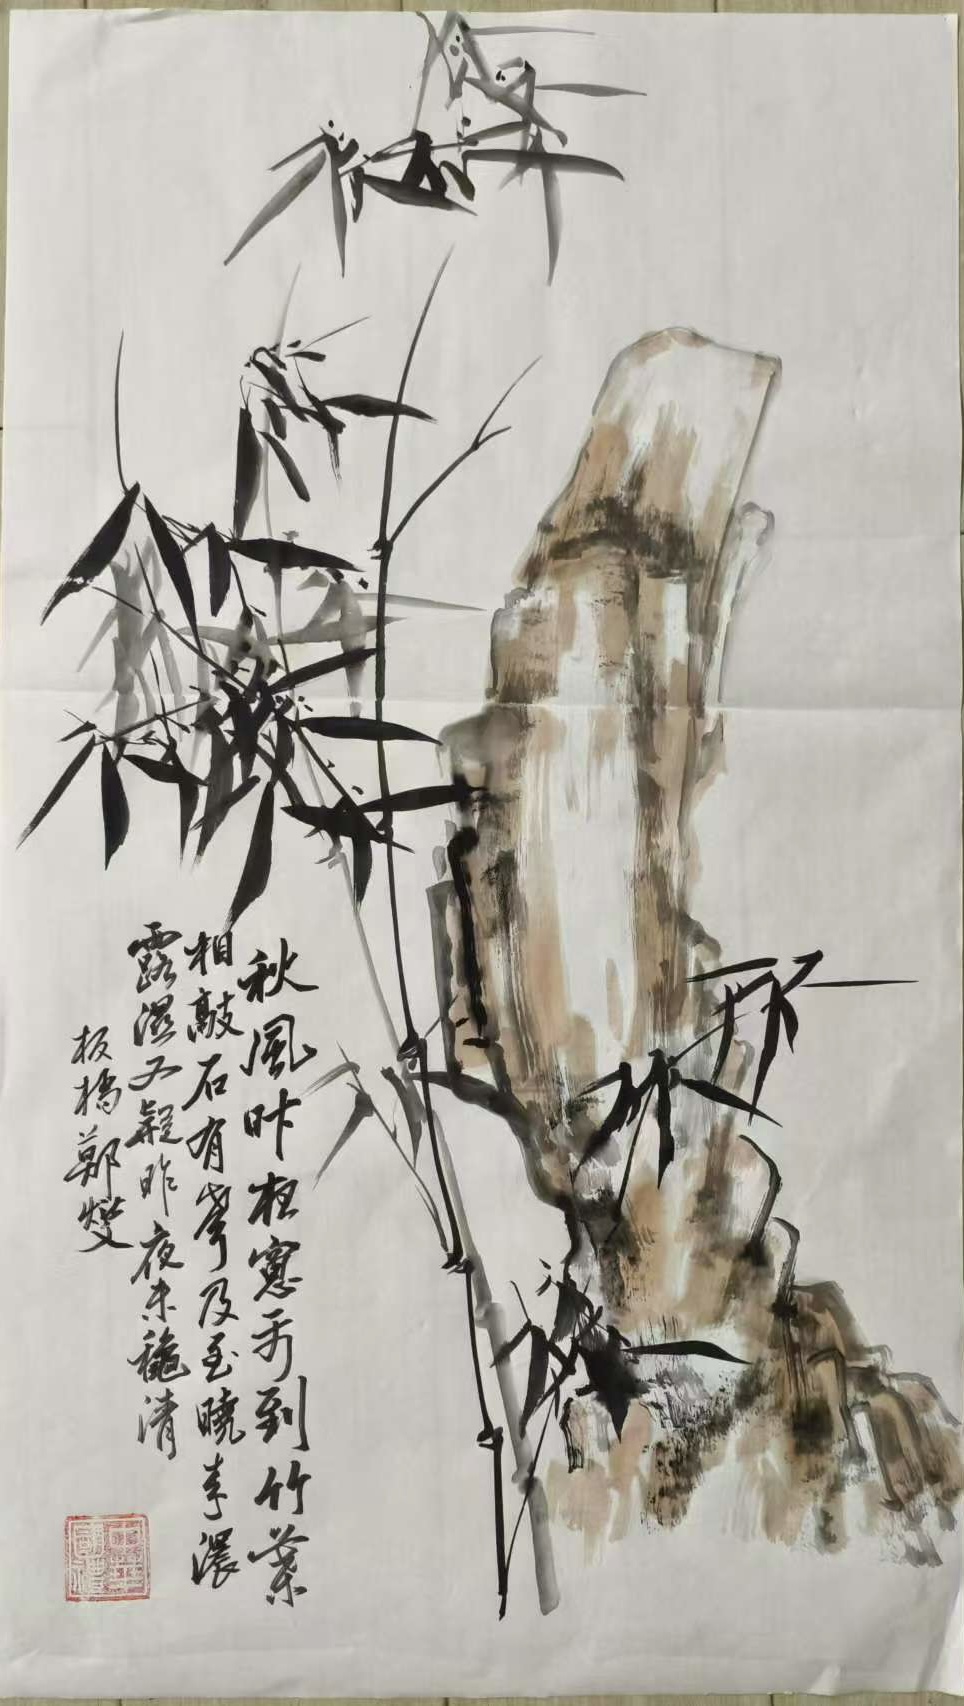 秋風昨夜窻前到竹葉
相敲石有聲及至曉來濃
露濕又疑昨夜未穐清
板橋鄭燮